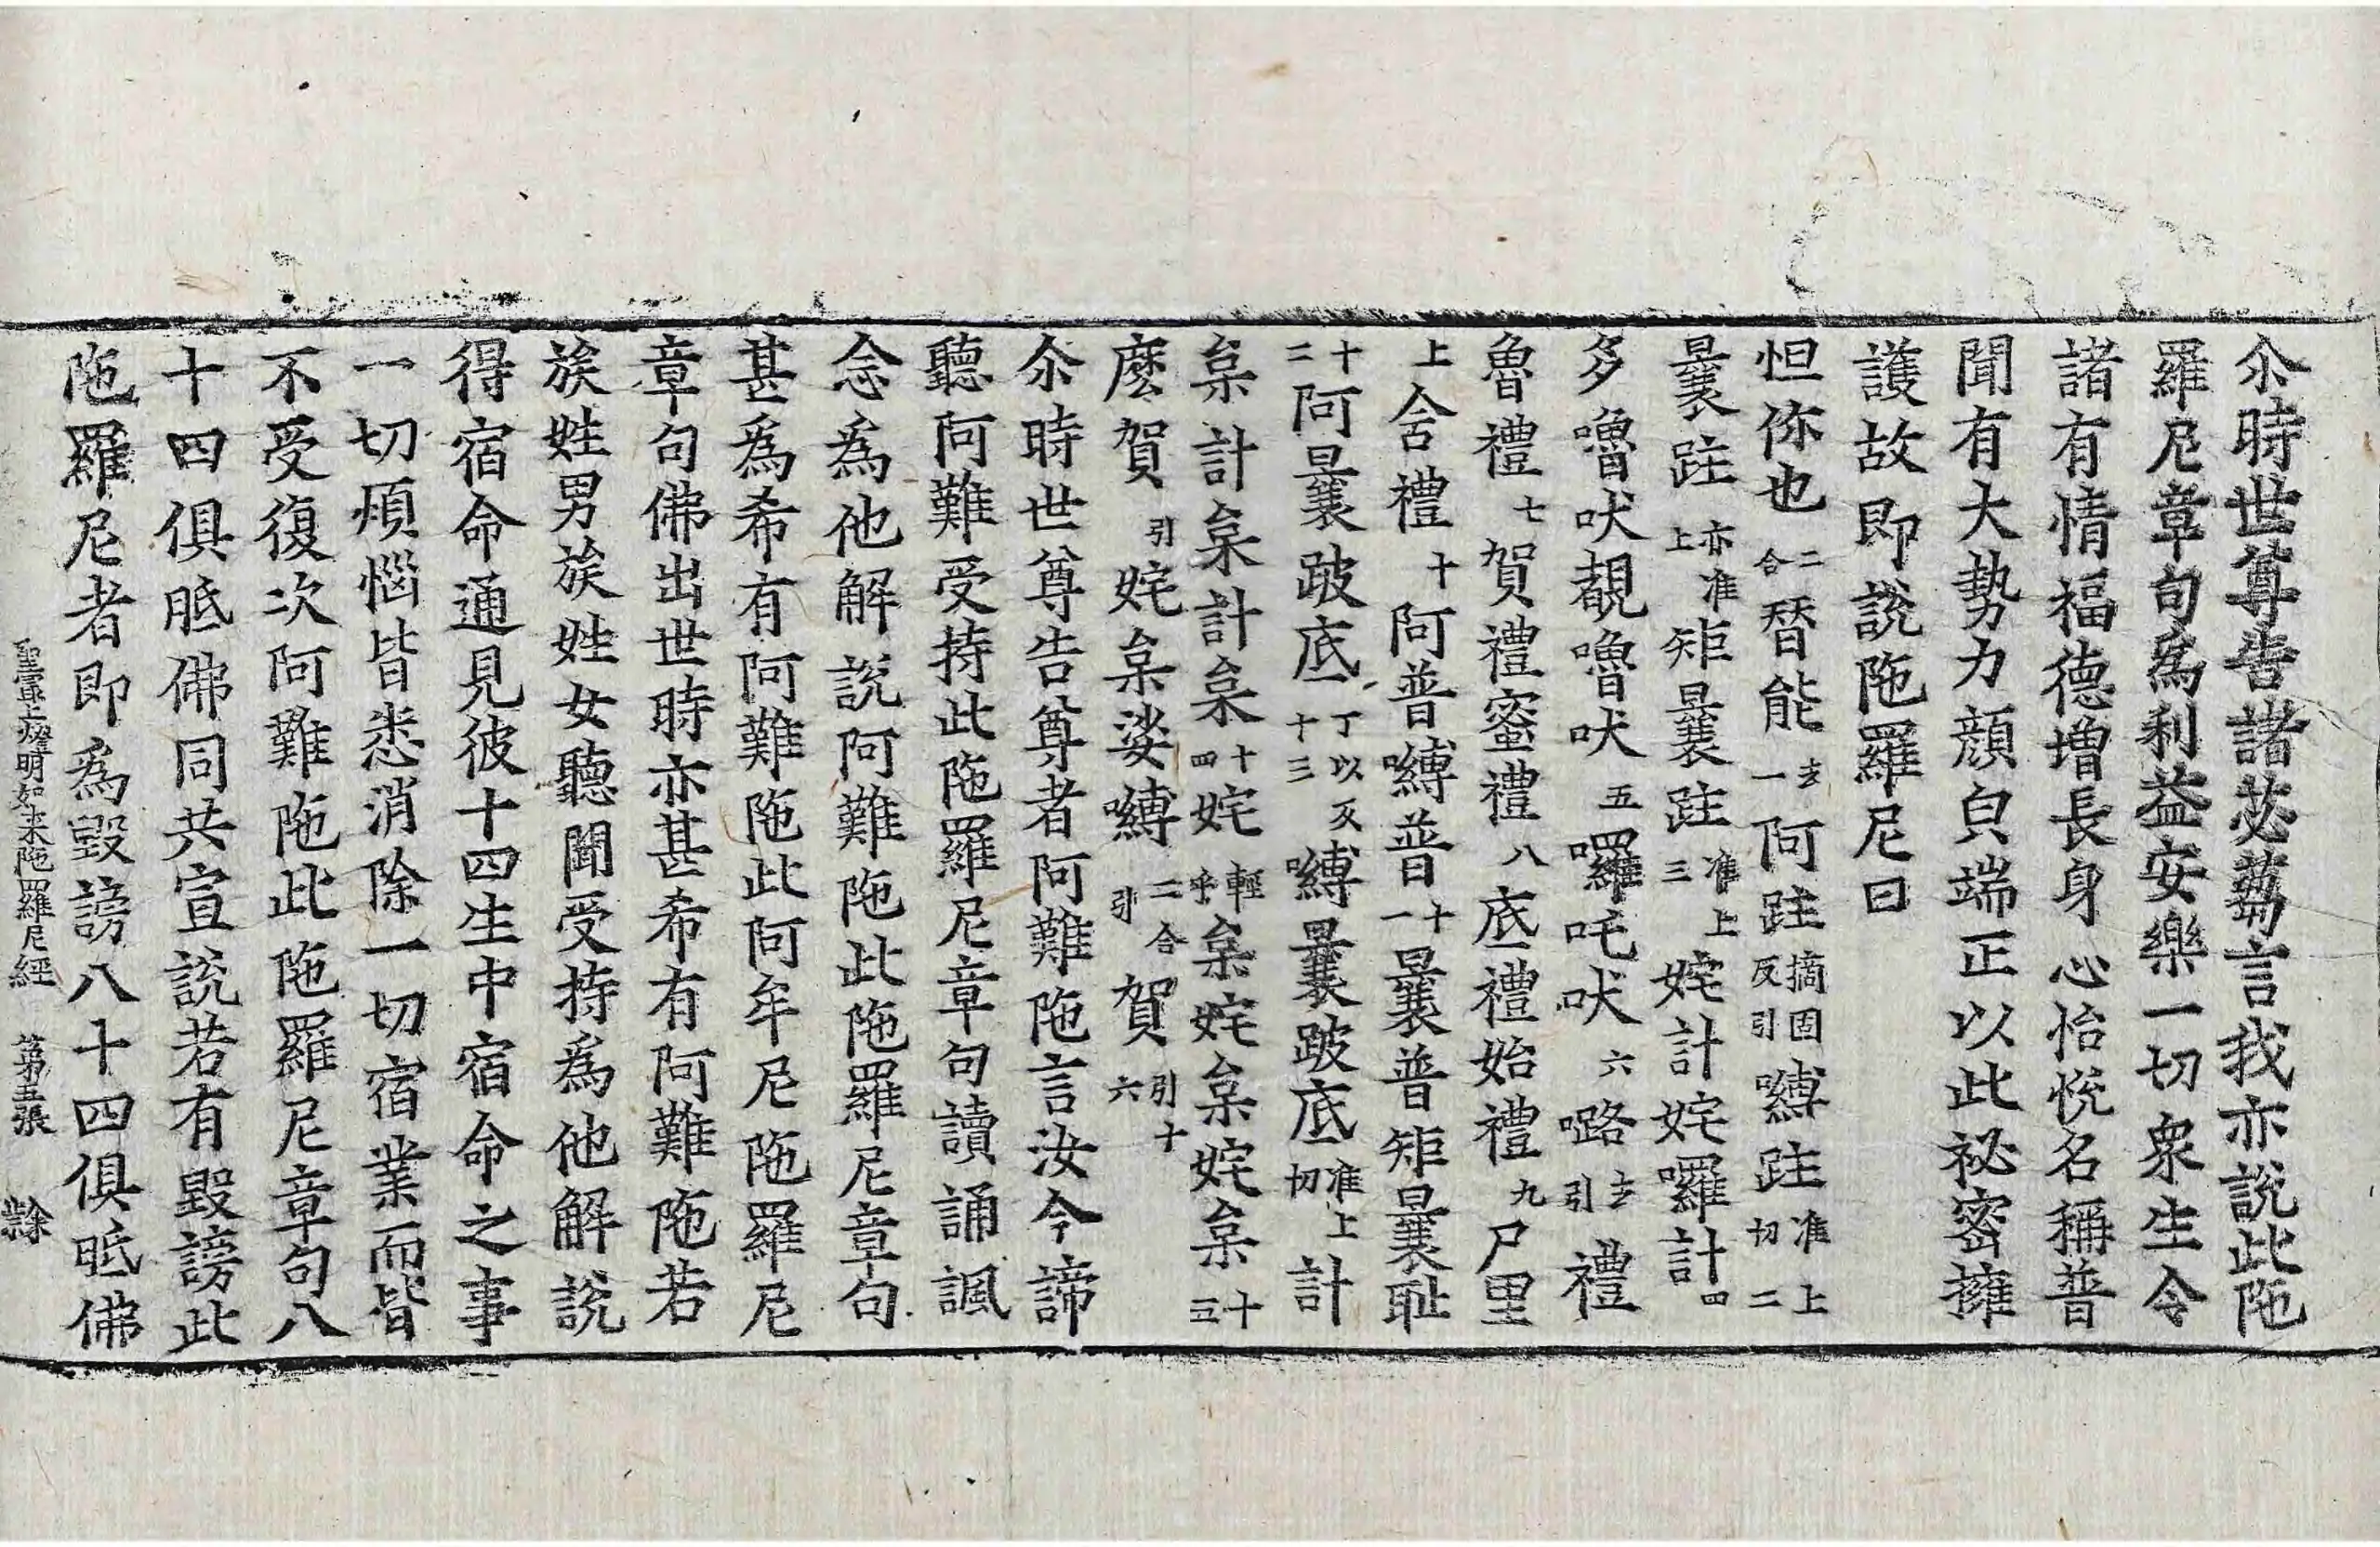 尒時世尊告諸苾蒭言我亦說此陁
羅尼章句爲利益安樂一切衆生令
諸有情福德增長身心怡悅名稱普
聞有大勢力顔皃端正以此祕密擁
護故即說陁羅尼曰
怛你也二合替能去一阿跓摘固反引嚩跓准上切二
曩跓亦准上矩曩跓准上三姹計姹囉計四
多嚕吠覩嚕吠五囉吒吠六㗍去引禮
魯禮七賀禮蜜禮八底禮始禮九尸里
上舍禮十阿普嚩普十一曩普矩曩耻
十二阿曩跛底丁以反十三嚩曩跛底准上切計
枲計枲計枲十四姹輕呼枲姹枲姹枲十五
麽賀引姹枲娑嚩二合引賀引十六
尒時世尊告尊者阿難陁言汝今諦
聽阿難受持此陁羅尼章句讀誦諷
念爲他解說阿難陁此陁羅尼章句
甚爲希有阿難陁此阿牟尼陁羅尼
章句佛出世時亦甚希有阿難陁若
族姓男族姓女聽聞受持爲他解說
得宿命通見彼十四生中宿命之事
一切煩惱皆悉消除一切宿業而皆
不受復次阿難陁此陁羅尼章句八
十四俱胝佛同共宣說若有毀謗此
陁羅尼者即爲毀謗八十四俱胝佛
聖最上燈明如來陁羅尼經 第五張